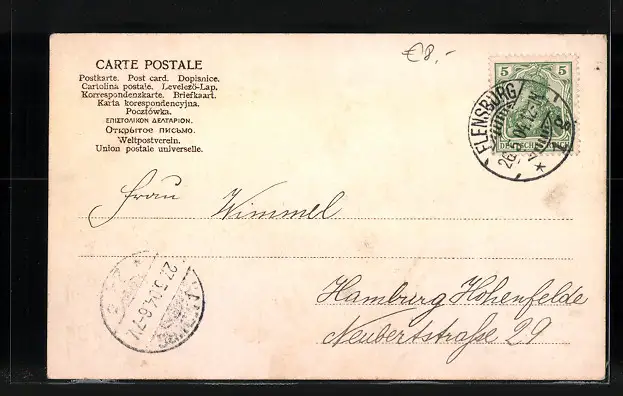 €8,-
CARTE POSTALE
Postkarte. Post card. Dopisnice.
Cartolina postale. Levelező-Lap.
Korrespondenzkarte. Briefkaart.
Karta korespondencyjna.
Pocztówka.
ΕΠΙΣΤΟΛΙΚΟΝ ΔΕΛΤΑΡΙΟΝ.
Открытое письмо.
Weltpostverein.
Union postale universelle.
5 5
DEUTSCHES REICH
FLENSBURG
Frau Wimmel
27.5.
Hamburg Hohenfelde
Neubertstraße 29